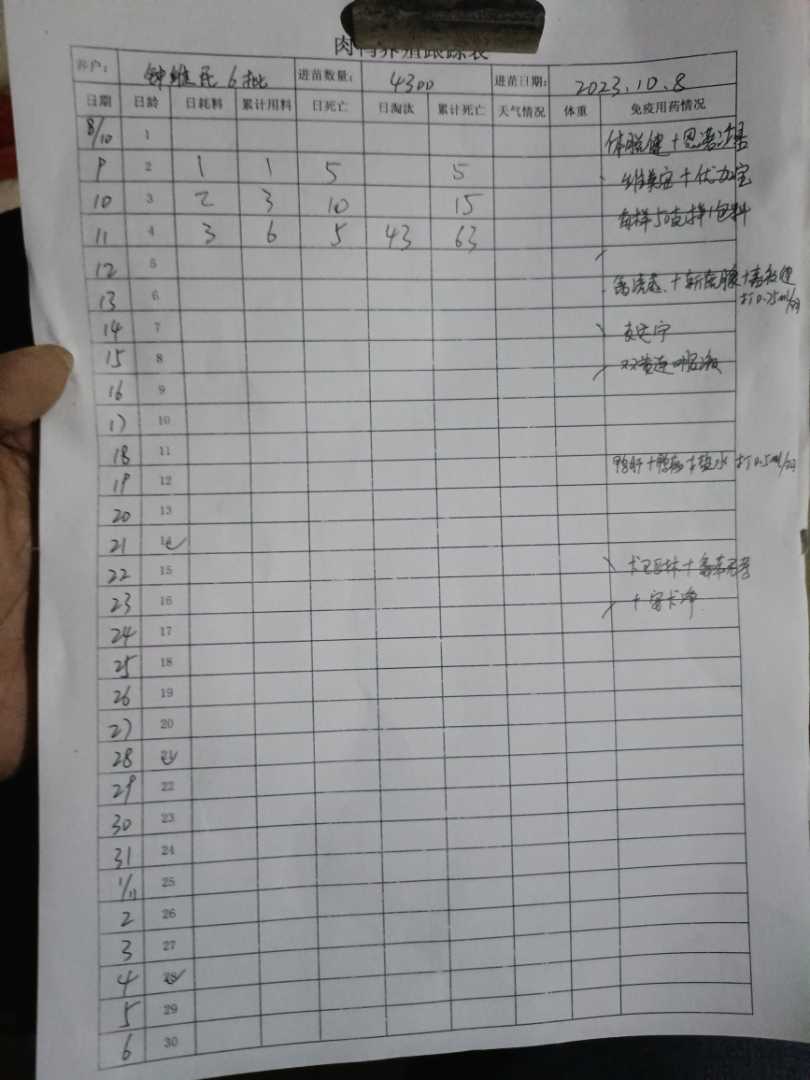 肉鸭养殖跟踪表
客户： 钟维民6批 进苗数量： 4300 进苗日期： 2023.10.8
日期 日龄 日耗料 累计用料 日死亡 日淘汰 累计死亡 天气情况 体重 免疫用药情况
8/10 1
9 2 1 1 5 5
10 3 2 3 10 15
11 4 3 6 5 43 63
12 5
13 6 打0.25ml/羽
14 7
15 8 双黄连口服液
16 9
17 10
18 11
19 12 打0.5ml/羽
20 13
21 14
22 15
23 16
24 17
25 18
26 19
27 20
28 21
29 22
30 23
31 24
1/11 25
2 26
3 27
4 28
5 29
6 30